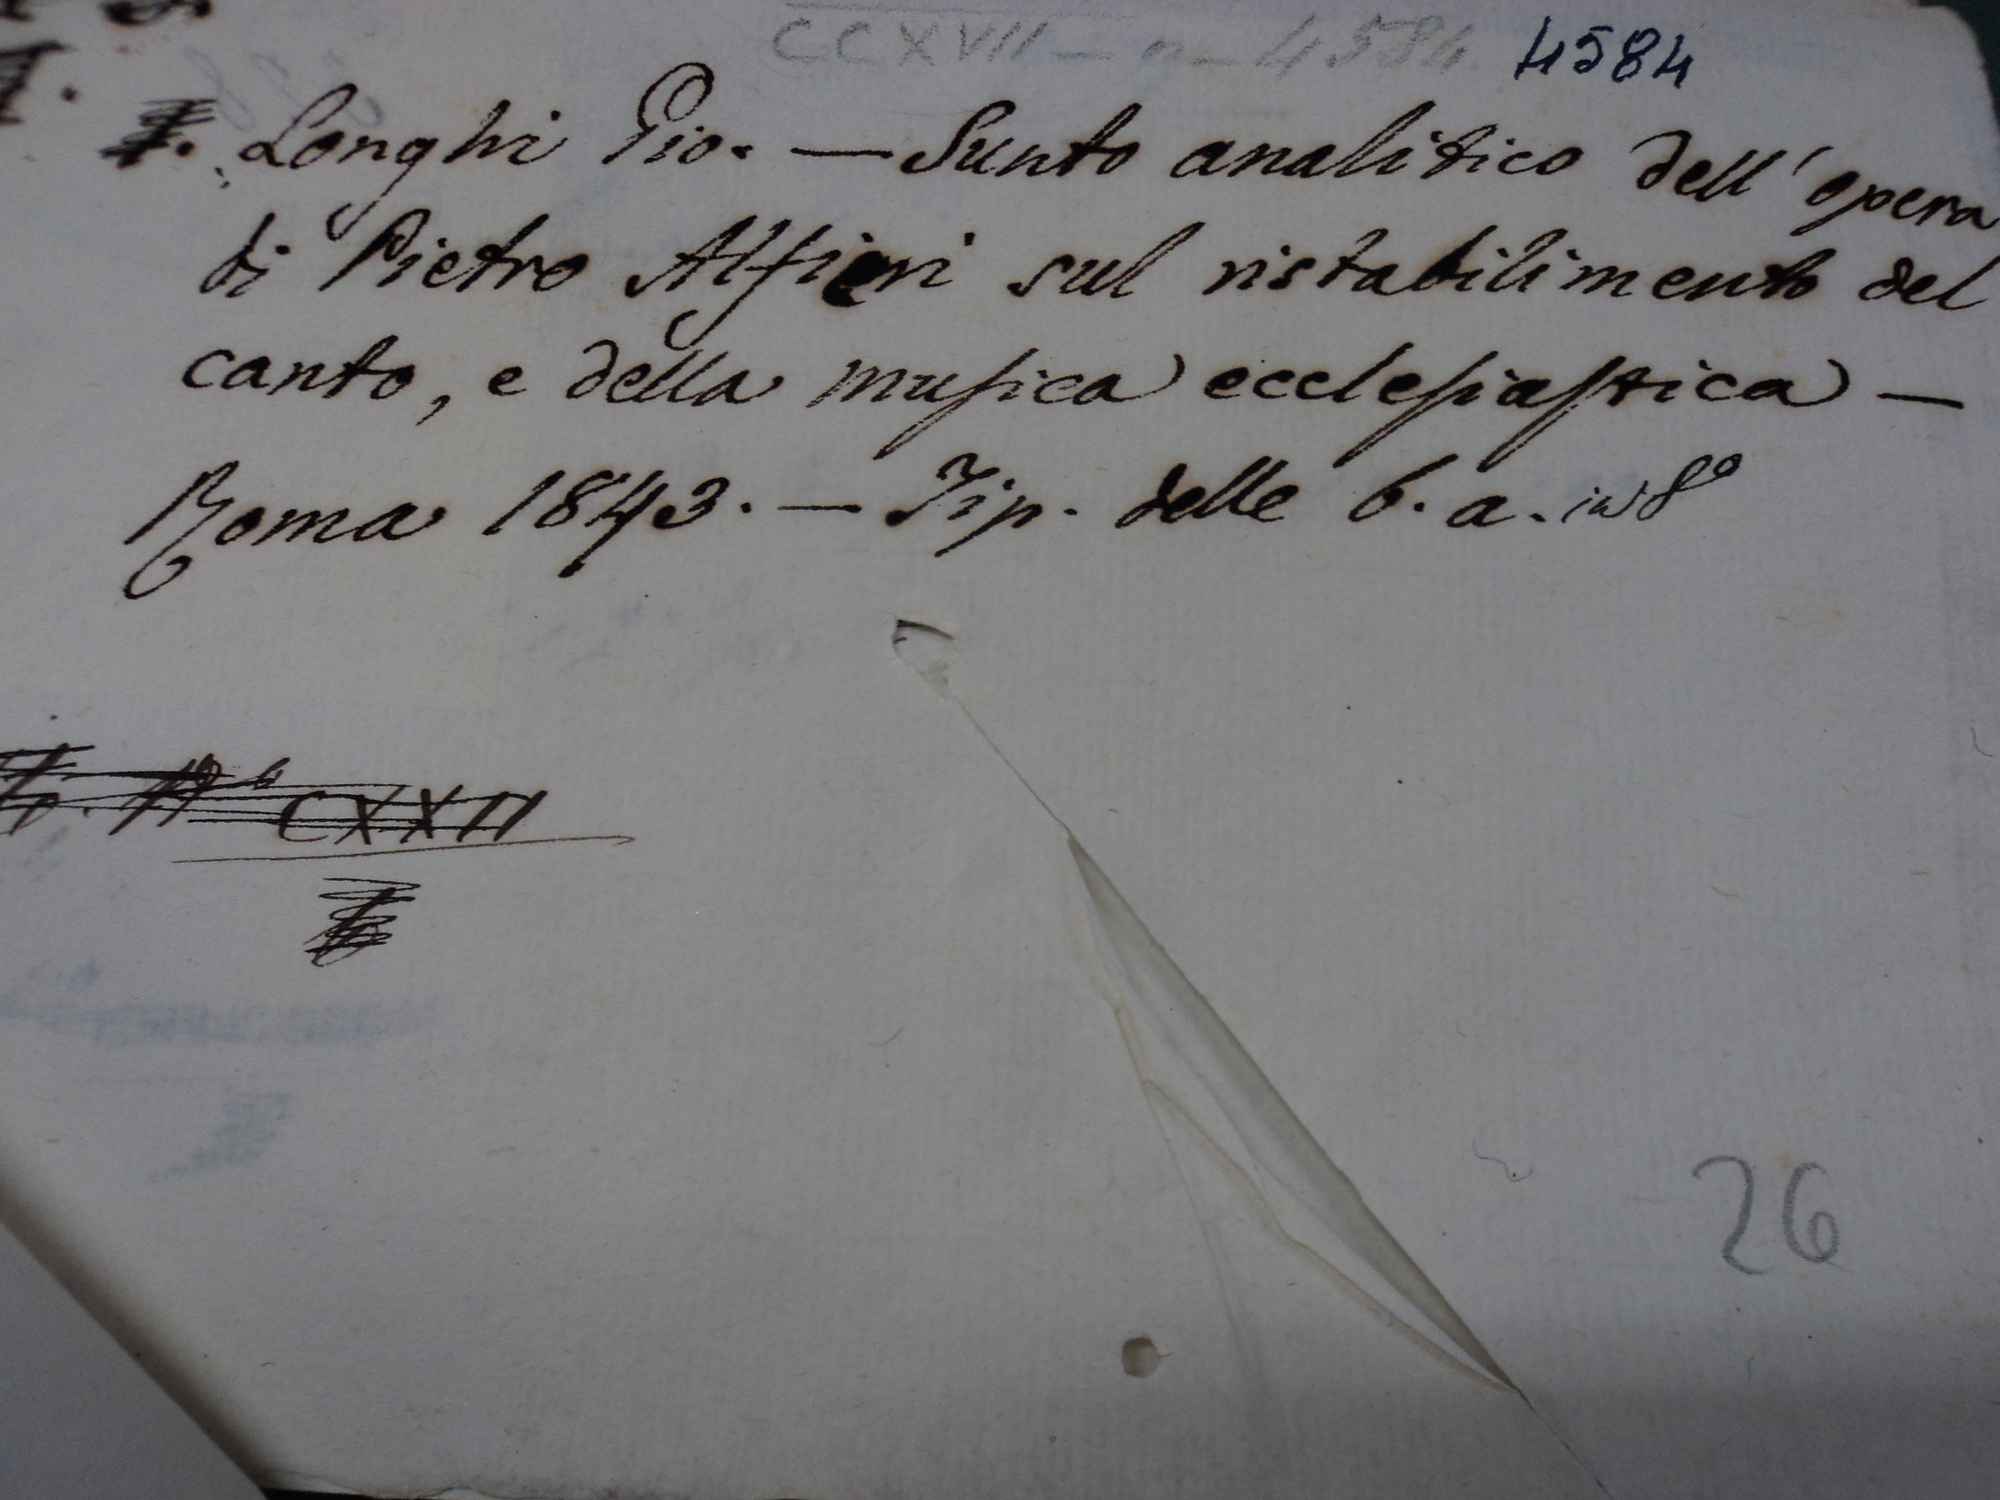 CCXVII — n — 4584 4584
Longhi Pio. — Sunto analitico dell' opera
di Pietro Alfieri sul ristabilimento del
canto, e della musica ecclesiastica —
Roma 1843. — Tip. delle b. a. in 8º
CXXII
26